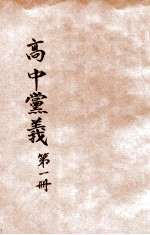 高中黨義
第一冊